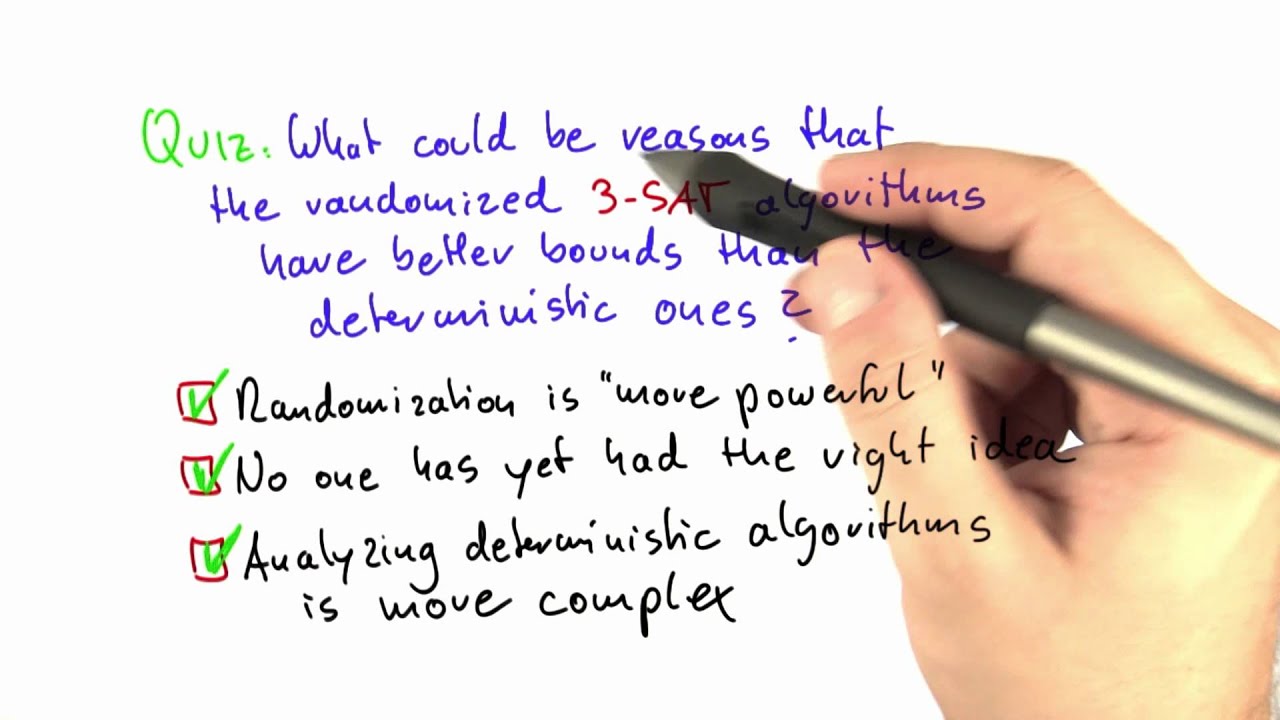 QUIZ: What could be reasons that
the randomized 3-SAT algorithms
have better bounds than the
deterministic ones?
Randomization is "more powerful"
No one has yet had the right idea
Analyzing deterministic algorithms
is more complex